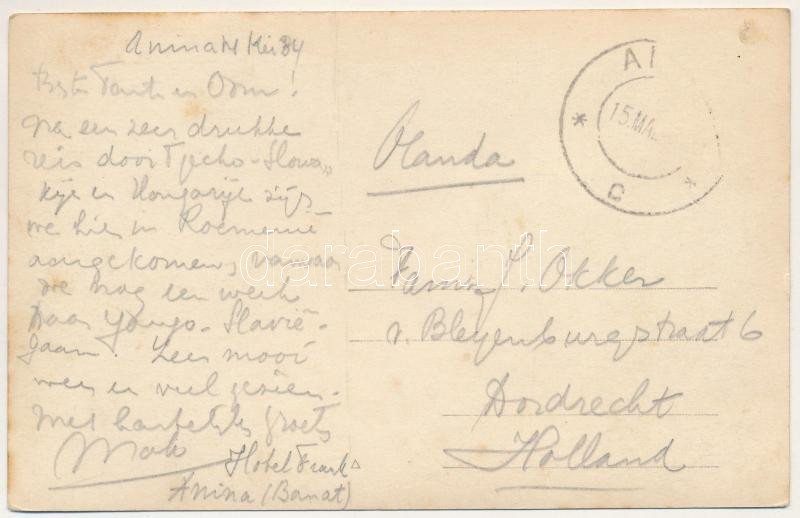 Anina 14 Mei 34
Beste Tante en Oom!
Na een zeer drukke
reis door Tjecho-Slowa-
kije en Hongarije zijn
we hier in Roemenië
aangekomen, vanwaar
we nog een week
naar Yougo-Slavië
gaan. Zeer mooi
weer en veel gezien.
Met hartelijke groets
Hotel Frank
Anina (Banat)
Olanda
Fam. Okker
v. Bleyenburgstraat 6
Dordrecht
Holland
15.MA
C
darabanth